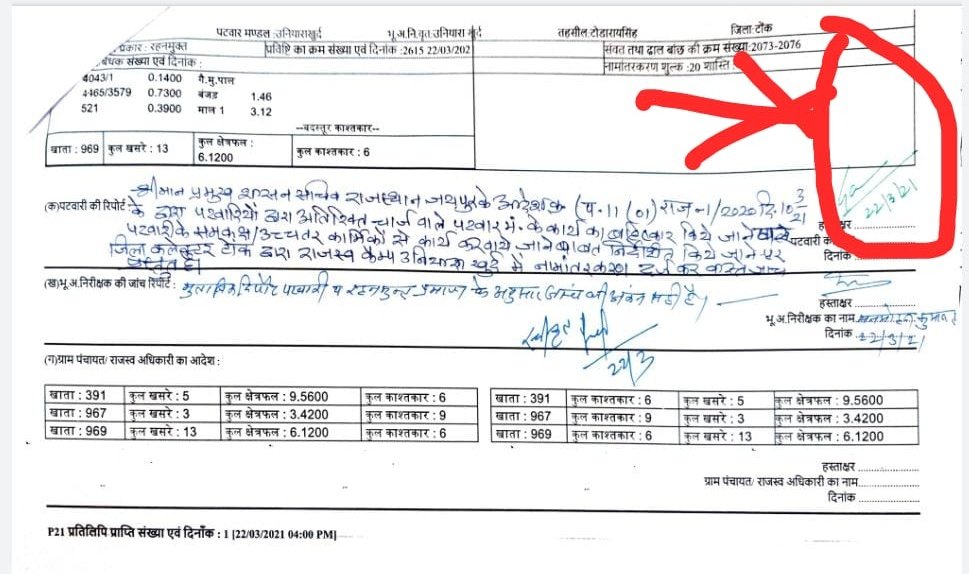 पटवार मण्डल :उनियाराखुर्द भू.अ.नि.वृत:उनियारा खुर्द तहसील.टोडारायसिंह जिला:टोंक
प्रकार : रहनमुक्त प्रविष्टि का क्रम संख्या एवं दिनांक :2615 22/03/202 संवत तथा ढाल बाँछ की क्रम संख्या:2073-2076
बंधक संख्या एवं दिनांक : नामांतरकरण शुल्क :20 शास्ति :
4043/1 0.1400 गै.मु.पाल
4465/3579 0.7300 बंजड़ 1.46
521 0.3900 माल 1 3.12
--बदस्तूर काश्तकार--
खाता : 969 कुल खसरे : 13 कुल क्षेत्रफल : 6.1200 कुल काश्तकार : 6
श्रीमान प्रमुख शासन सचिव राजस्थान जयपुर के आदेश क्रमांक
(क)पटवारी की रिपोर्ट के द्वारा पटवारियों द्वारा अतिरिक्त चार्ज वाले पटवार मं. के कार्य का बहिष्कार किये जाने प.11 (01) राज-1/2020 दि. 10/3/21
पटवारी के समकक्ष/उच्चतर कार्मिकों से कार्य करवाये जाने बाबत निर्देशित किये जाने पर
जिला कलेक्टर टोंक द्वारा राजस्व कैम्प उनियारा खुर्द में नामांतरकरण दर्ज कर वास्ते जांच
प्रस्तुत है।
22/3/21
हस्ताक्षर
पटवारी का
दिनांक
(ख)भू.अ.निरीक्षक की जांच रिपोर्ट : मुताबिक रिपोर्ट पटवारी व रहनमुक्त प्रमाण के अनुसार जांच की अंकन सही है।
22/3
हस्ताक्षर
भू.अ.निरीक्षक का नाम
दिनांक 22/3/21
(ग)ग्राम पंचायत/ राजस्व अधिकारी का आदेश :
खाता : 391 कुल खसरे : 5 कुल क्षेत्रफल : 9.5600 कुल काश्तकार : 6 खाता : 391 कुल काश्तकार : 6 कुल खसरे : 5 कुल क्षेत्रफल : 9.5600
खाता : 967 कुल खसरे : 3 कुल क्षेत्रफल : 3.4200 कुल काश्तकार : 9 खाता : 967 कुल काश्तकार : 9 कुल खसरे : 3 कुल क्षेत्रफल : 3.4200
खाता : 969 कुल खसरे : 13 कुल क्षेत्रफल : 6.1200 कुल काश्तकार : 6 खाता : 969 कुल काश्तकार : 6 कुल खसरे : 13 कुल क्षेत्रफल : 6.1200
हस्ताक्षर
ग्राम पंचायत/ राजस्व अधिकारी का नाम
दिनांक
P21 प्रतिलिपि प्राप्ति संख्या एवं दिनाँक : 1 [22/03/2021 04:00 PM]